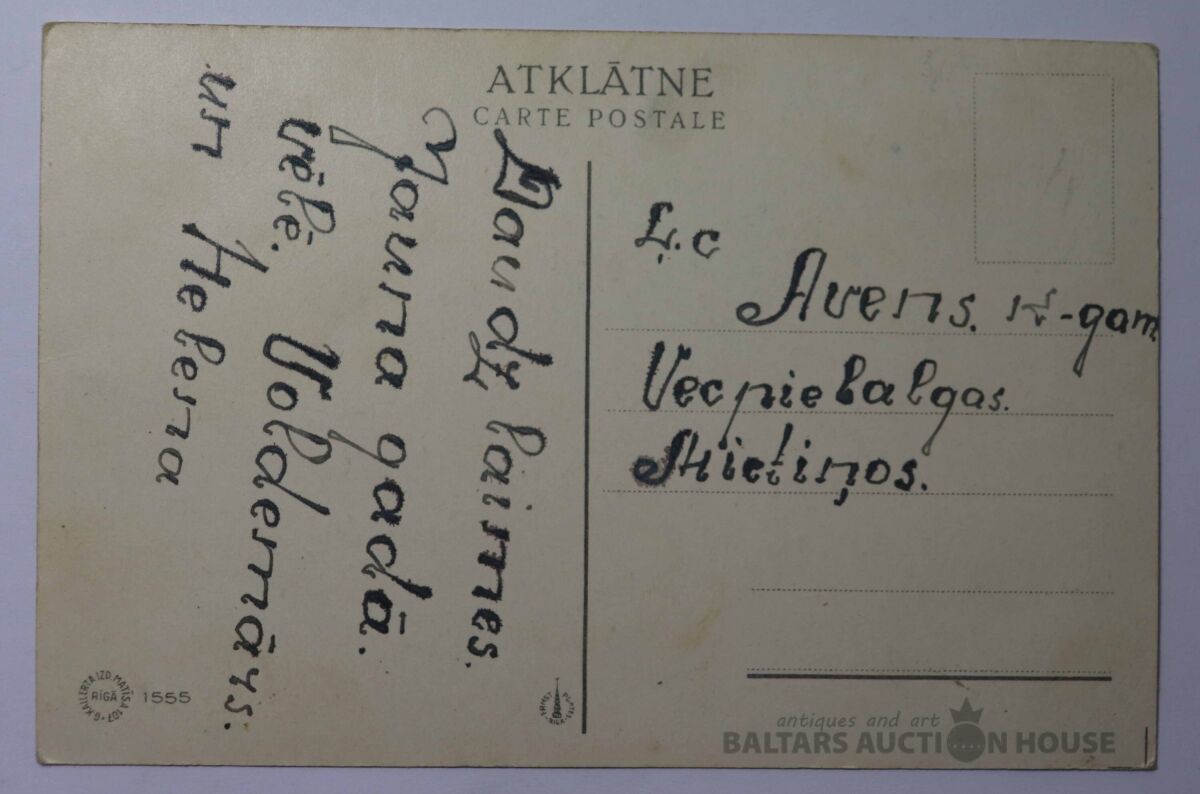 ATKLĀTNE
CARTE POSTALE
Daudz laimes.
Jauna gadā.
vēlē. Voldemārs.
un Helena
Ļ. c
Avens. -gam
Vecpiebalgas.
Mietiņos.
G. KAILERTA IZD. MATĪSA 107
RĪGĀ
1555
antiques and art
BALTARS AUCTION HOUSE